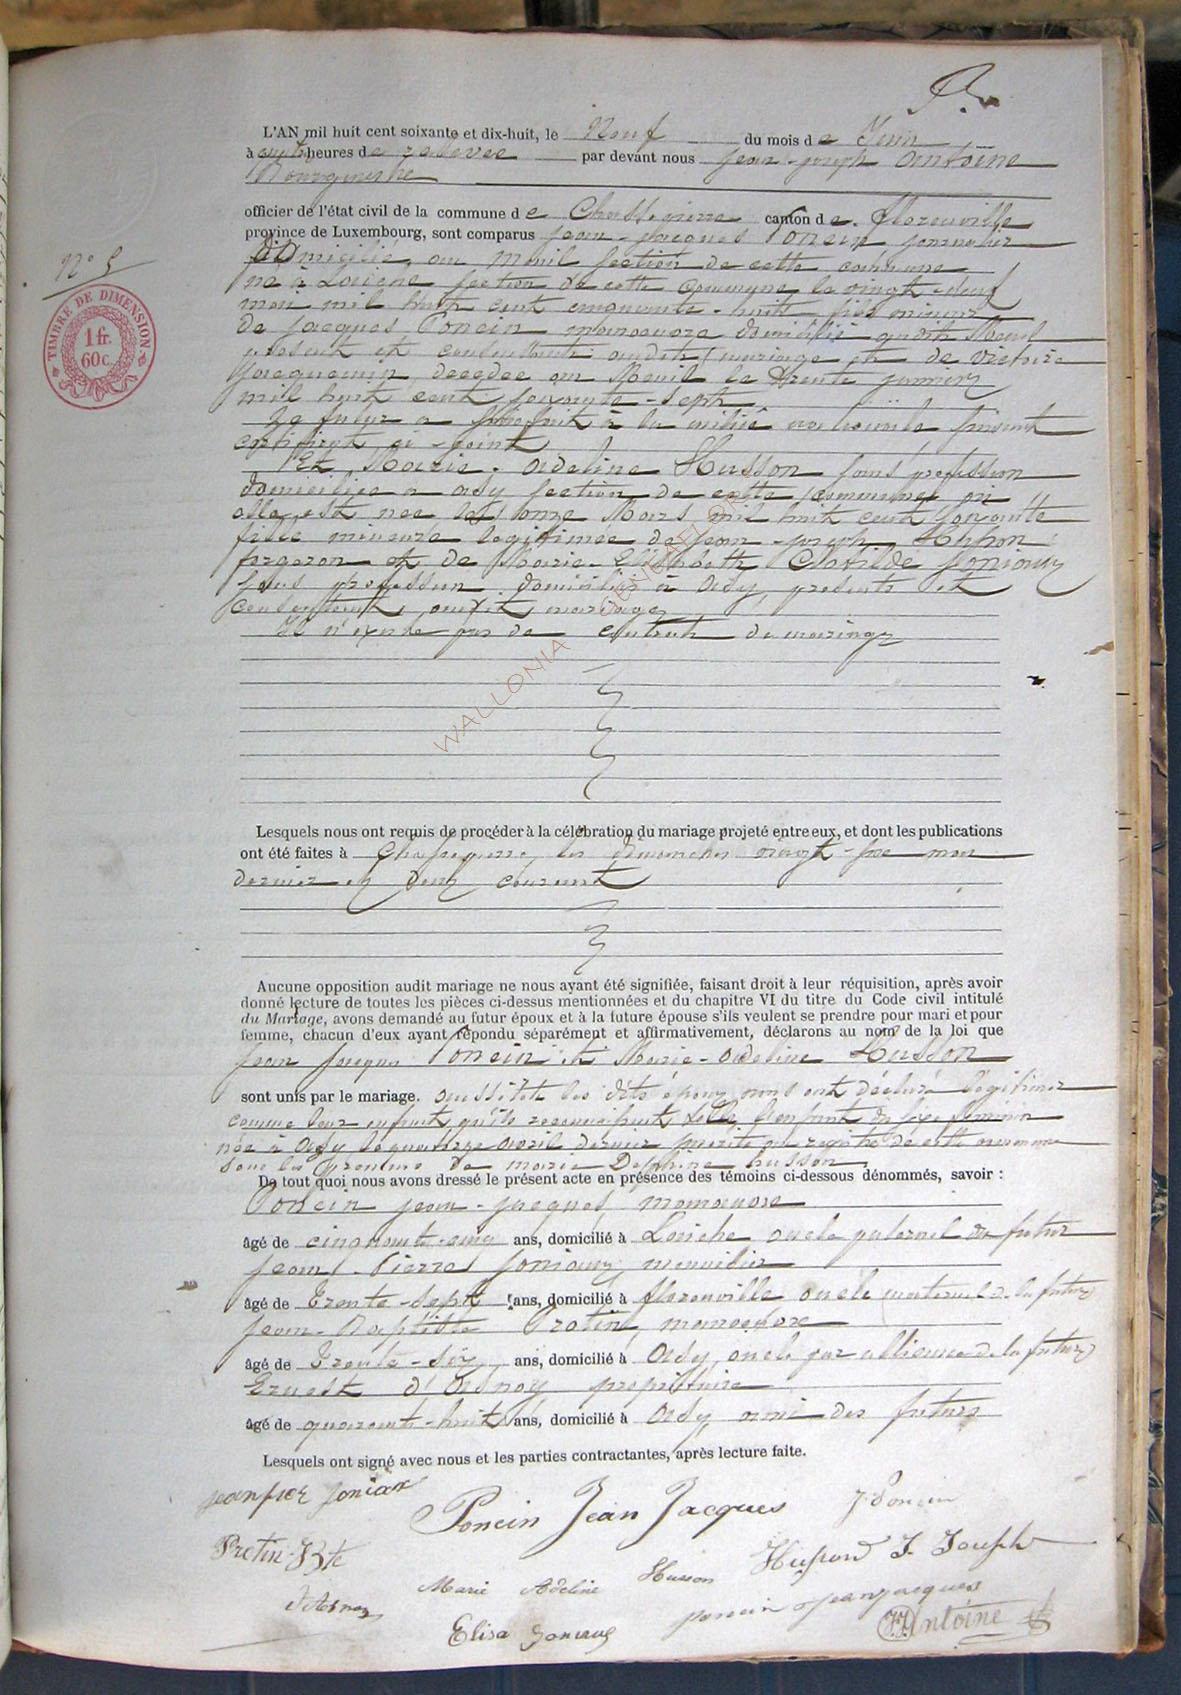 L'AN mil huit cent soixante et dix-huit, le Neuf du mois de Juin
à huit heures de relevée par devant nous Jean-Joseph Antoine
Bourgmestre
officier de l'état civil de la commune de Chassepierre canton de Florenville
province de Luxembourg, sont comparus Jean-Jacques Poncin journalier
N° 5
domicilié au Menil section de cette commune
TIMBRE DE DIMENSION
1 fr.
60c.
né à Laiche section de cette commune le vingt-neuf
mai mil huit cent cinquante-huit, fils mineur
de Jacques Poncin manoeuvre domicilié audit Menil
présent et consentant audit mariage et de Victoire
Jacquemin, décédée au Menil le trente janvier
mil huit cent soixante-sept
Le futur a satisfait à la milice
certificat ci-joint
Et Marie-Adeline Husson sans profession
domiciliée à Azy section de cette commune où
elle est née le onze Mars mil huit cent soixante
fille mineure légitimée de Jean-Joseph Husson
forgeron et de Marie Elisabeth Clotilde Joniaux
sans profession domiciliés à Azy, présents et
consentants audit mariage
Il n'existe pas de contrat de mariage
WALLONIA GENEAELOR
Lesquels nous ont requis de procéder à la célébration du mariage projeté entre eux, et dont les publications
ont été faites à Chassepierre, les dimanches vingt-six mai
dernier et deux courant
Aucune opposition audit mariage ne nous ayant été signifiée, faisant droit à leur réquisition, après avoir
donné lecture de toutes les pièces ci-dessus mentionnées et du chapitre VI du titre du Code civil intitulé
du Mariage, avons demandé au futur époux et à la future épouse s'ils veulent se prendre pour mari et pour
femme, chacun d'eux ayant répondu séparément et affirmativement, déclarons au nom de la loi que
Jean Jacques Poncin et Marie-Adeline Husson
sont unis par le mariage. aussitôt les dits époux nous ont déclaré légitimer
comme leur enfant, qu'ils reconnaissent telle, l'enfant du sexe féminin
née à Azy le quatorze avril dernier inscrite au registre de cette commune
sous les prénoms de Marie Delphine husson
De tout quoi nous avons dressé le présent acte en présence des témoins ci-dessous dénommés, savoir :
Poncin Jean-Jacques manoeuvre
âgé de cinquante-cinq ans, domicilié à Laiche oncle paternel du futur
Jean-Pierre Joniaux, menuisier
âgé de trente-sept ans, domicilié à florenville oncle maternel de la future
Jean-Baptiste Pretin, manoeuvre
âgé de trente-six ans, domicilié à Azy, oncle par alliance de la future
Ernest d'Arnoy propriétaire
âgé de quarante-huit ans, domicilié à Azy ami des futurs
Lesquels ont signé avec nous et les parties contractantes, après lecture faite.
Jeanpier Joniax
Poncin Jean Jacques
J Poncin
Pretin Bte
Marie Adeline Husson
Husson J. Joseph
Elisa Joniaux
poncin jeanjacques
JJ Antoine